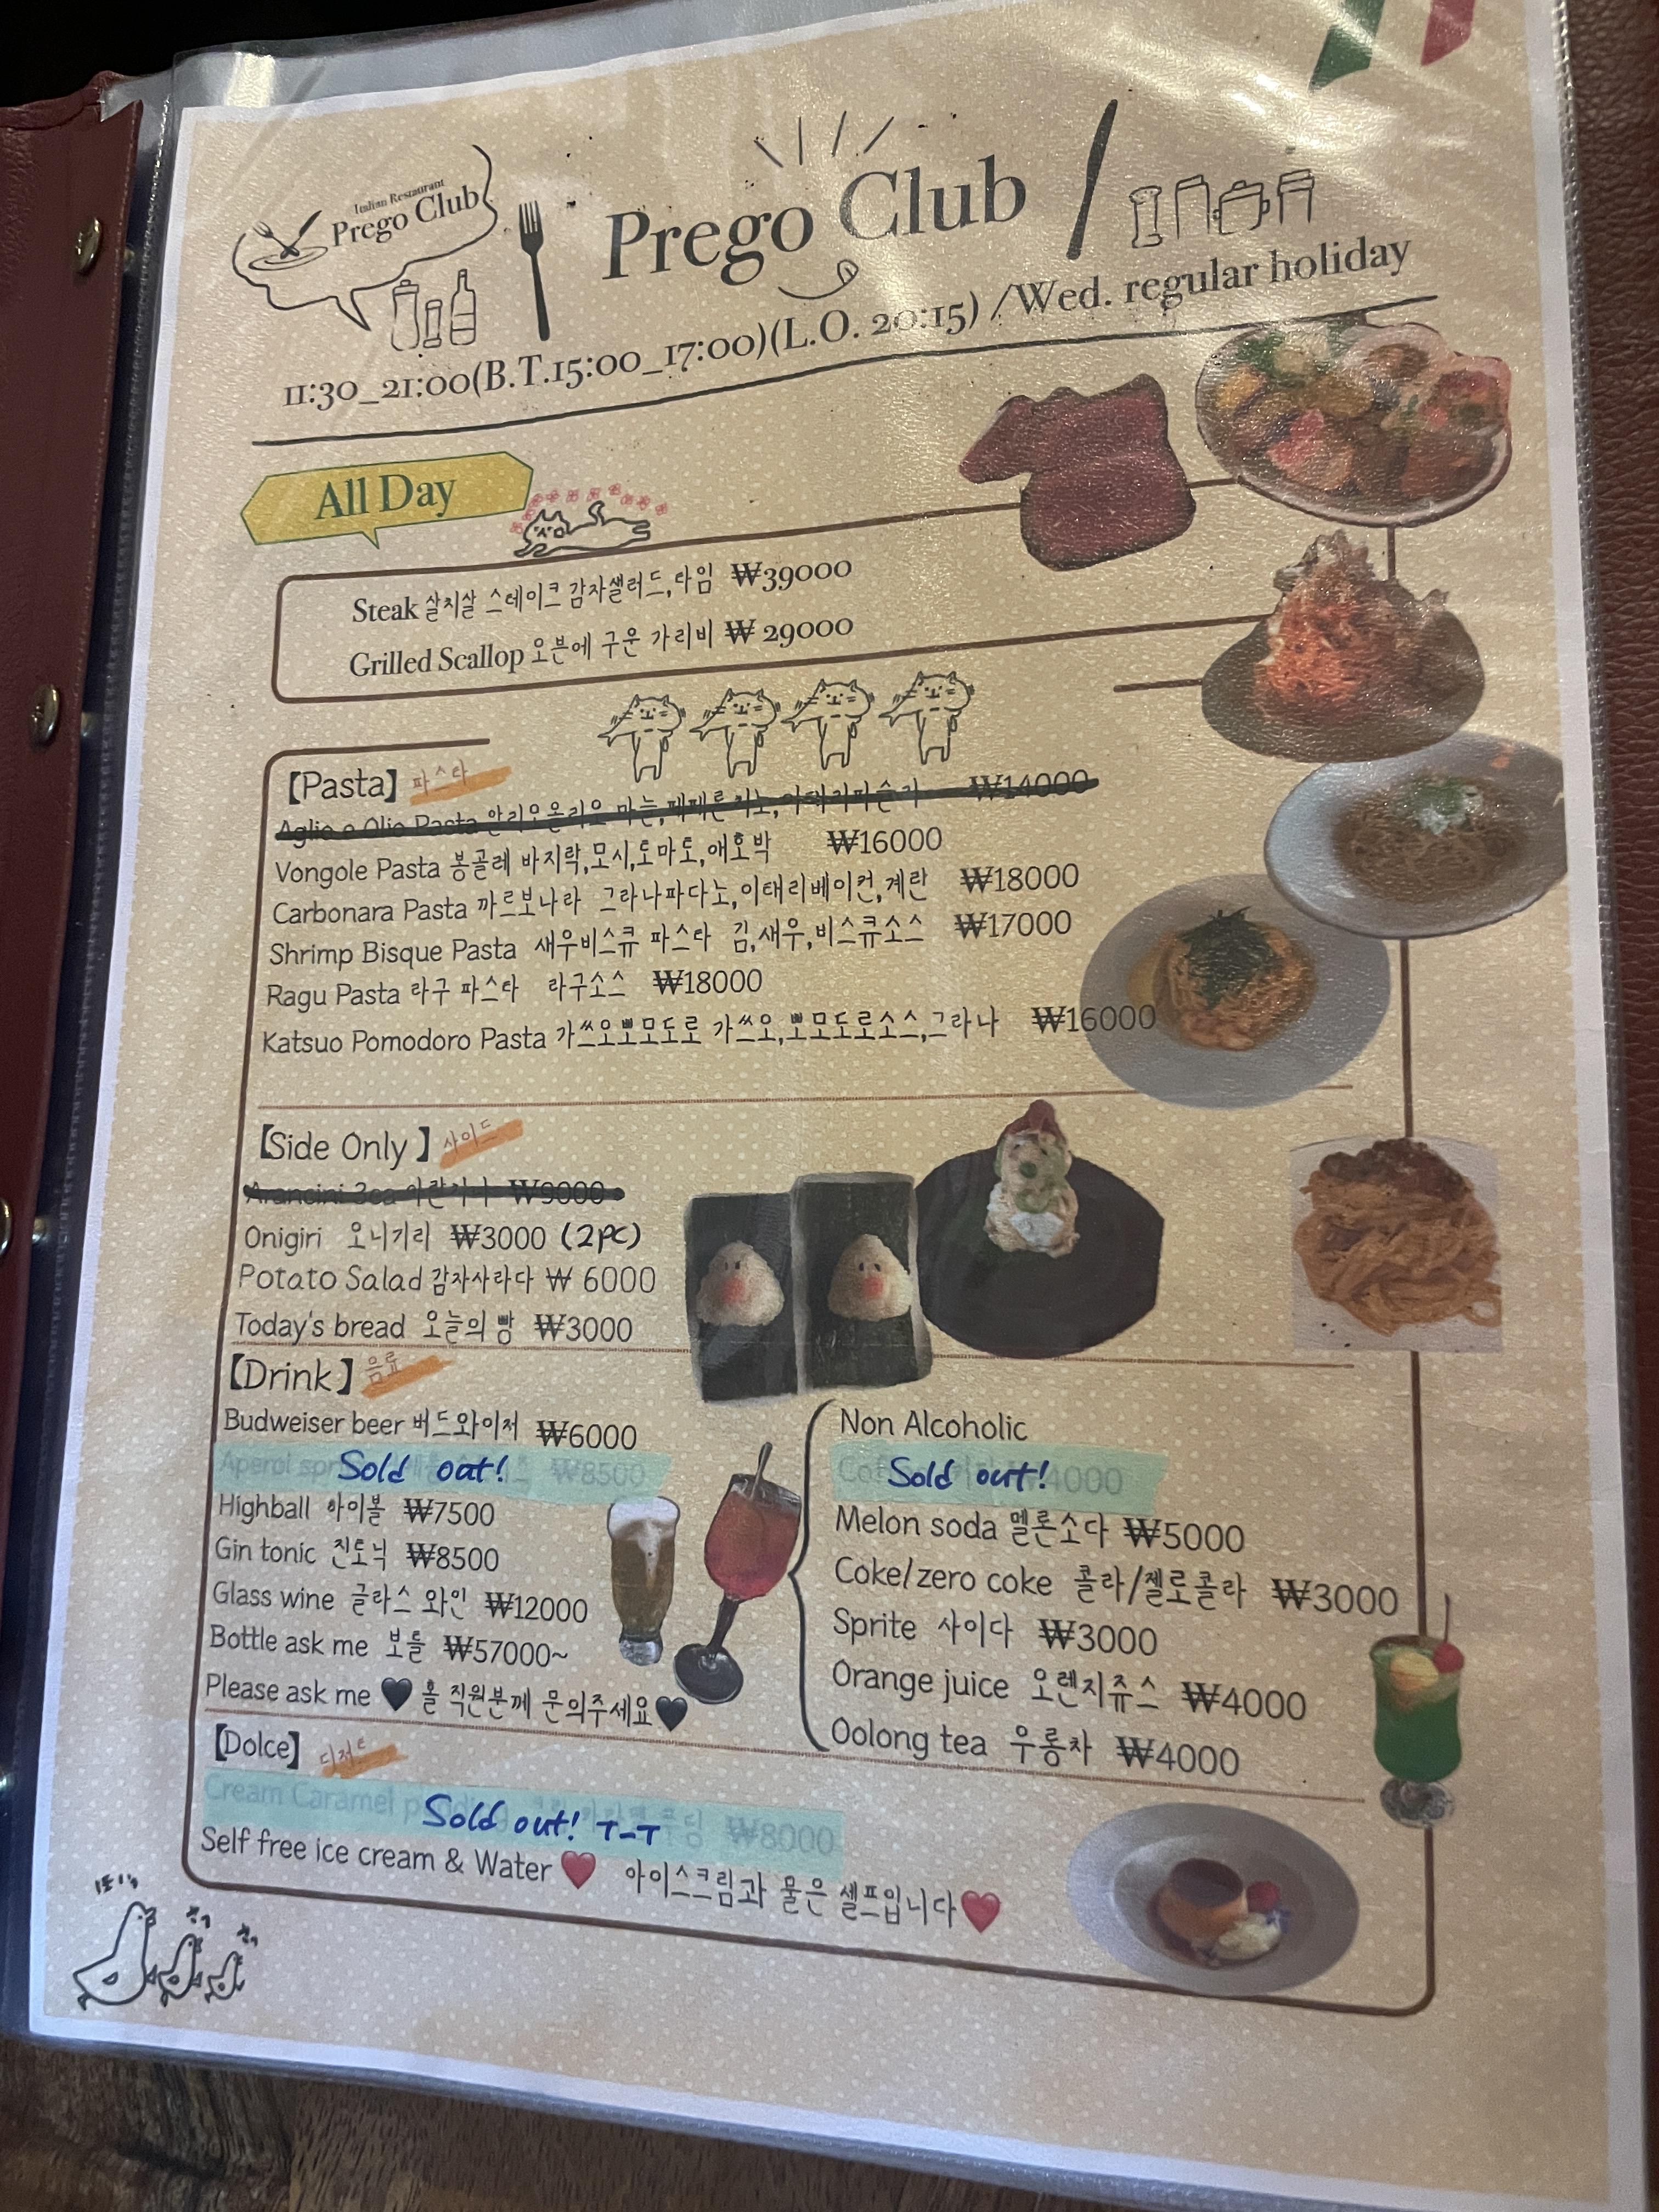 Italian Restaurant
Prego Club
Prego Club
11:30_21:00(B.T.15:00_17:00)(L.O. 20:15) /Wed. regular holiday
All Day
Steak 살치살 스테이크 감자샐러드,타임 ₩39000
Grilled Scallop 오븐에 구운 가리비 ₩ 29000
【Pasta】 파스타
Aglio e Olio Pasta 알리오올리오 마늘,페페론치노, ₩14000
Vongole Pasta 봉골레 바지락,모시,토마토,애호박 ₩16000
Carbonara Pasta 까르보나라 그라나파다노,이태리베이컨,계란 ₩18000
Shrimp Bisque Pasta 새우비스큐 파스타 김,새우,비스큐소스 ₩17000
Ragu Pasta 라구 파스타 라구소스 ₩18000
Katsuo Pomodoro Pasta 가쓰오뽀모도로 가쓰오,뽀모도로소스,그라나 ₩16000
【Side Only】 사이드
Arancini 3ea 아란치니 ₩9000
Onigiri 오니기리 ₩3000 (2pc)
Potato Salad 감자사라다 ₩ 6000
Today's bread 오늘의 빵 ₩3000
【Drink】 음료
Budweiser beer 버드와이저 ₩6000
Aperol Sold out! ₩8500
Highball 하이볼 ₩7500
Gin tonic 진토닉 ₩8500
Glass wine 글라스 와인 ₩12000
Bottle ask me 보틀 ₩57000~
Please ask me 🖤 홀 직원분께 문의주세요🖤
Non Alcoholic
Sold out! 4000
Melon soda 멜론소다 ₩5000
Coke/zero coke 콜라/젤로콜라 ₩3000
Sprite 사이다 ₩3000
Orange juice 오렌지쥬스 ₩4000
Oolong tea 우롱차 ₩4000
【Dolce】 디저트
Cream Caramel Sold out! T-T 푸딩 ₩8000
Self free ice cream & Water ❤️ 아이스크림과 물은 셀프입니다❤️